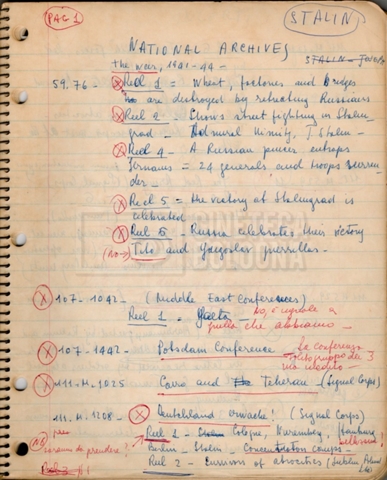 PAG 1
STALIN
NATIONAL ARCHIVES
the war, 1941-44 -
59.76 - Reel 1 = Wheat, factories and bridges
are destroyed by retreating Russians
Reel 2 - Shows street fighting in Stalin
grad - Admiral Nimitz, J. Stalin -
Reel 4 - A Russian pincer entraps
Germans = 24 generals and troops surren
der -
Reel 5 = the victory at Stalingrad is
celebrated
Reel 5 - Russia celebrates their victory
(No→) Tito and Yugoslav guerrillas -
CINETECA
BOLOGNA
107-1042 - (Middle East Conferences)
Reel 1 = Yalta - No, è uguale a
quella che abbiamo -
107-1442 - Potsdam Conference - La conferenza
gruppo dei 3
111.M.1025 Cairo and Teheran - (Signal Corps)
111.M.1208 - Deutschland erwache! (Signal Corps)
(NO)
Reel 1 - Cologne, Nuremberg, Hamburg
Berlin - Stalin - Concentration camps -
Reel 2 - Evasion of atrocities (Lublin, Poland